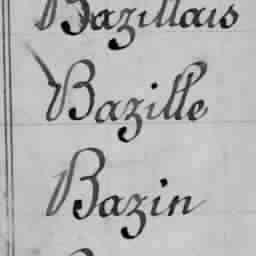 Bazillais
Bazille
Bazin